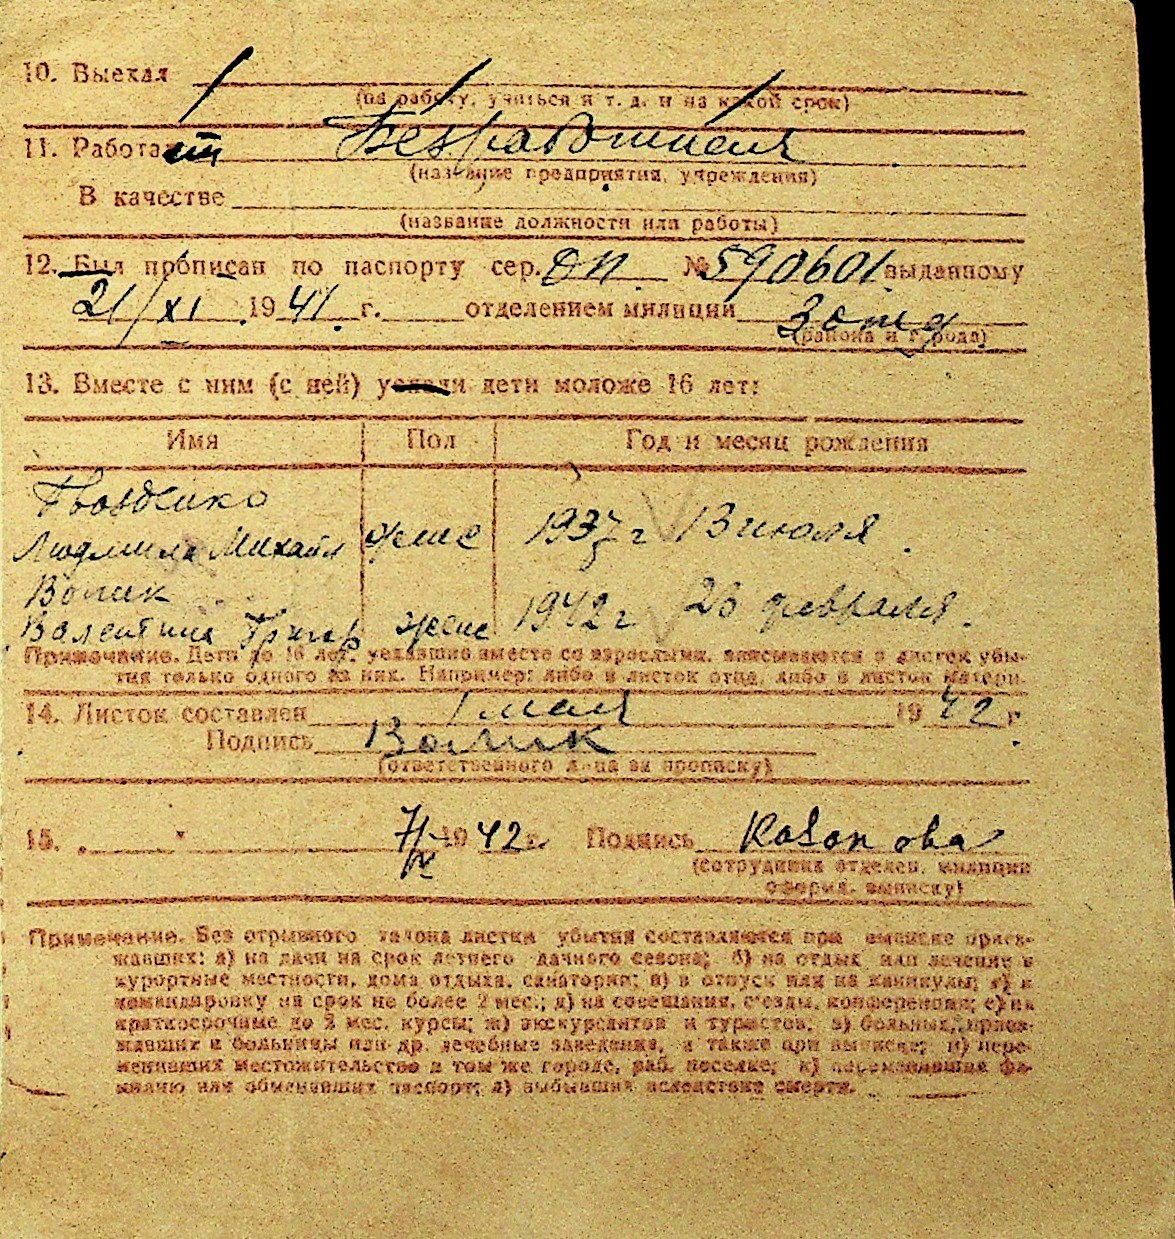 10. Выехал
(на работу, учиться и т. д. и на какой срок)
11. Работает Безработная
(название предприятия, учреждения)
В качестве
(название должности или работы)
12. Был прописан по паспорту сер. ДП. № 590601 выданному
21/XI 1941 г. отделением милиции 3 отд
(района и города)
13. Вместе с ним (с ней) у дети моложе 16 лет:
Имя Пол Год и месяц рождения
Гвозденко
Людмила Михайл женс 1937 г 13 июля.
Волик
Валентина Григор женс 1942 г 23 февраля.
Примечание. Дети до 16 лет, уехавшие вместе со взрослыми, вписываются в листок убы-
тия только одного из них. Например: либо в листок отца, либо в листок матери.
14. Листок составлен 1 мая 1942 г
Подпись Волик
(ответственного лица за прописку)
15. „ " 7/V 1942 г. Подпись
(сотрудника отделен. милиции
оформл. выписку)
Примечание. Без отрывного талона листки убытия составляются при выписке приез-
жавших: а) на дачи на срок летнего дачного сезона; б) на отдых или лечение в
курортные местности, дома отдыха, санатории; в) в отпуск или на каникулы; г) в
командировку на срок не более 2 мес.; д) на совещания, съезды, конференции; е) на
краткосрочные до 2 мес. курсы; ж) экскурсантов и туристов; з) больных, приез-
жавших в больницы или др. лечебные заведения, а также при выписке; и) пере-
менивших местожительство в том же городе, раб. поселке; к) переменивших фа-
милию или обменявших паспорт; л) выбывших вследствие смерти.